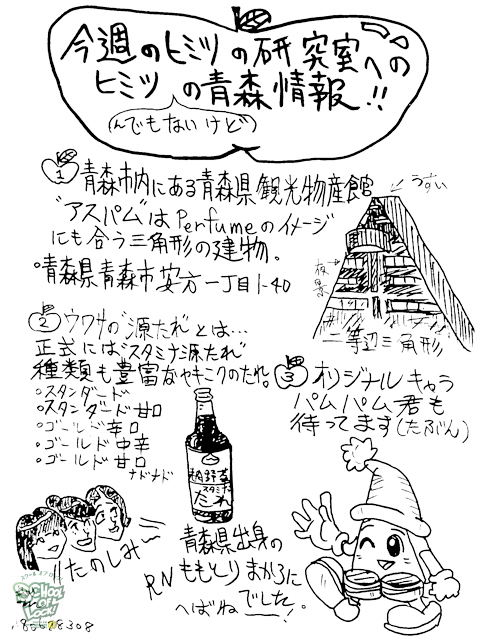 今週のヒミツの研究室への
ヒミツの青森情報!!
(んでもないけど)
① 青森市内にある青森県観光物産館
“アスパム”はPerfumeのイメージ
にも合う三角形の建物。
。青森県青森市安方一丁目1-40
←うすい
夜景→
二等辺三角形
② ウワサの“源たれ”とは…
正式には“スタミナ源たれ”
種類も豊富なヤキニクのたれ。
。スタンダード
。スタンダード甘口
。ゴールド辛口
。ゴールド中辛
。ゴールド甘口
ナドナド
スタミナ
たれ
③ オリジナルキャラ
パムパム君も
待ってます(たぶん)
たのしみー
青森県出身の
RN ももとりまかろに
へばねでした!
SCHOOL OF LOCK!